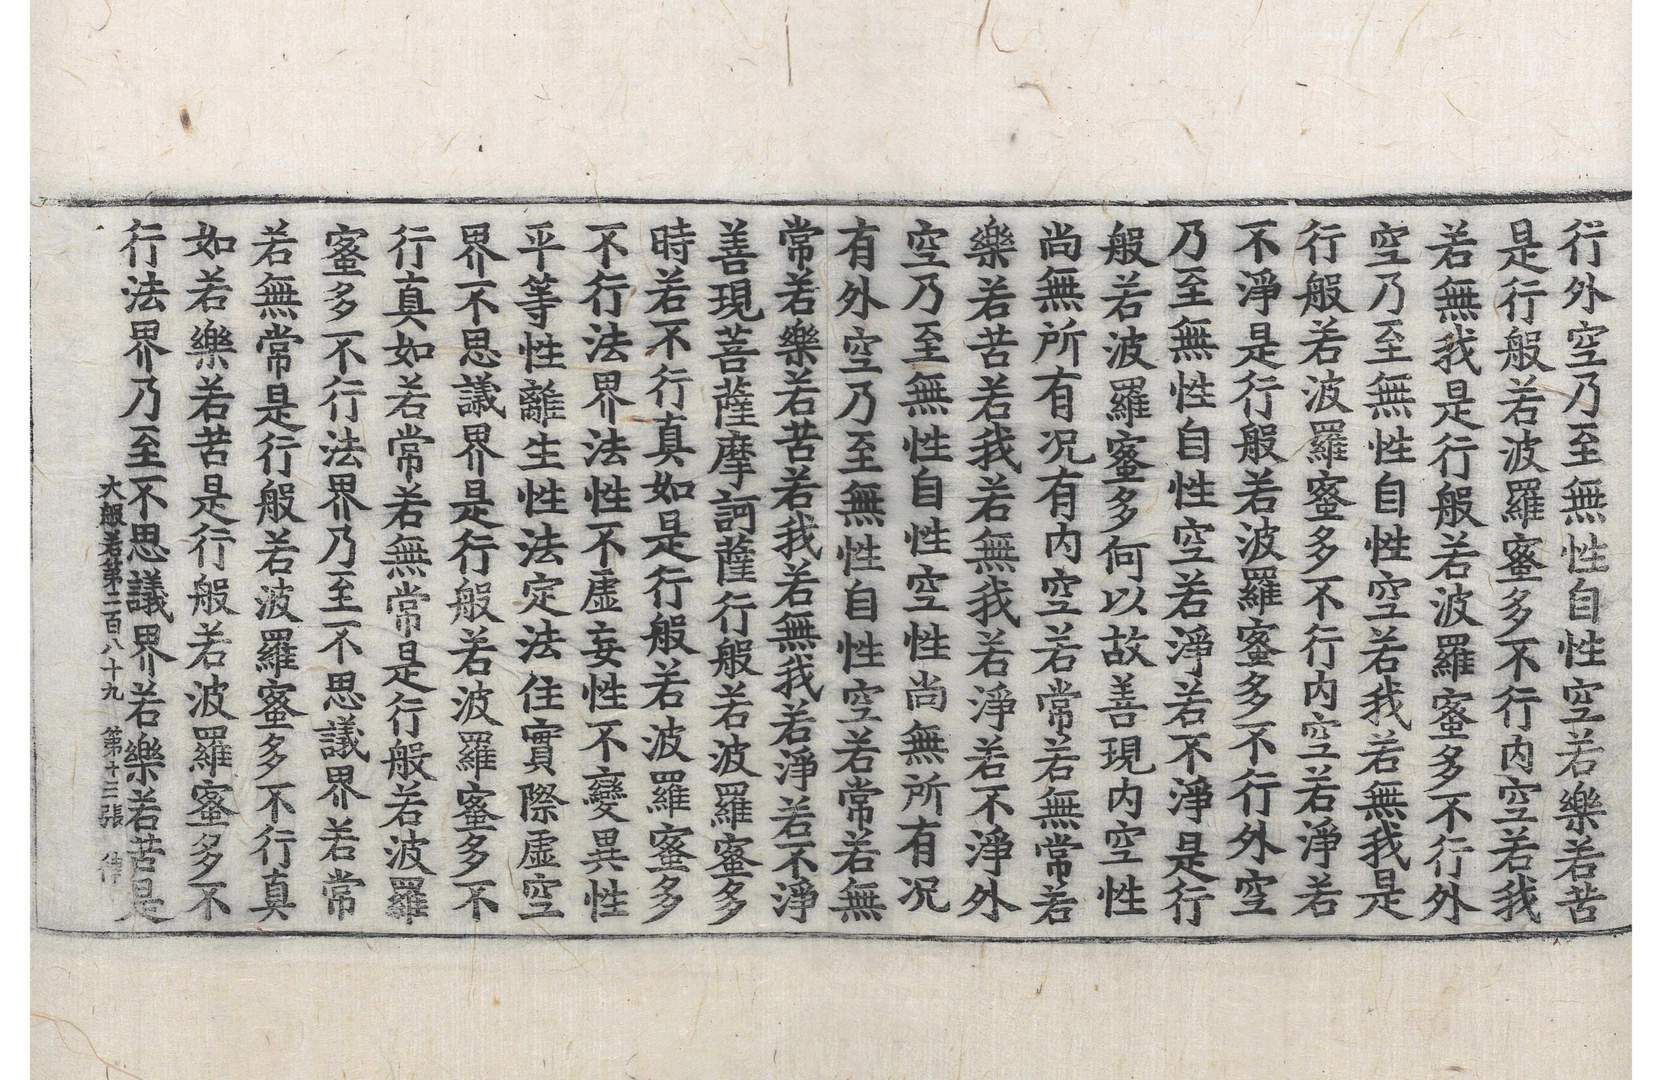 行外空乃至無性自性空若樂若苦
是行般若波羅蜜多不行内空若我
若無我是行般若波羅蜜多不行外
空乃至無性自性空若我若無我是
行般若波羅蜜多不行内空若淨若
不淨是行般若波羅蜜多不行外空
乃至無性自性空若淨若不淨是行
般若波羅蜜多何以故善現内空性
尚無所有况有内空若常若無常若
樂若苦若我若無我若淨若不淨外
空乃至無性自性空性尚無所有况
有外空乃至無性自性空若常若無
常若樂若苦若我若無我若淨若不淨
善現菩薩摩訶薩行般若波羅蜜多
時若不行真如是行般若波羅蜜多
不行法界法性不虛妄性不變異性
平等性離生性法定法住實際虛空
界不思議界是行般若波羅蜜多不
行真如若常若無常是行般若波羅
蜜多不行法界乃至不思議界若常
若無常是行般若波羅蜜多不行真
如若樂若苦是行般若波羅蜜多不
行法界乃至不思議界若樂若苦是
大般若第二百八十九 第十三張